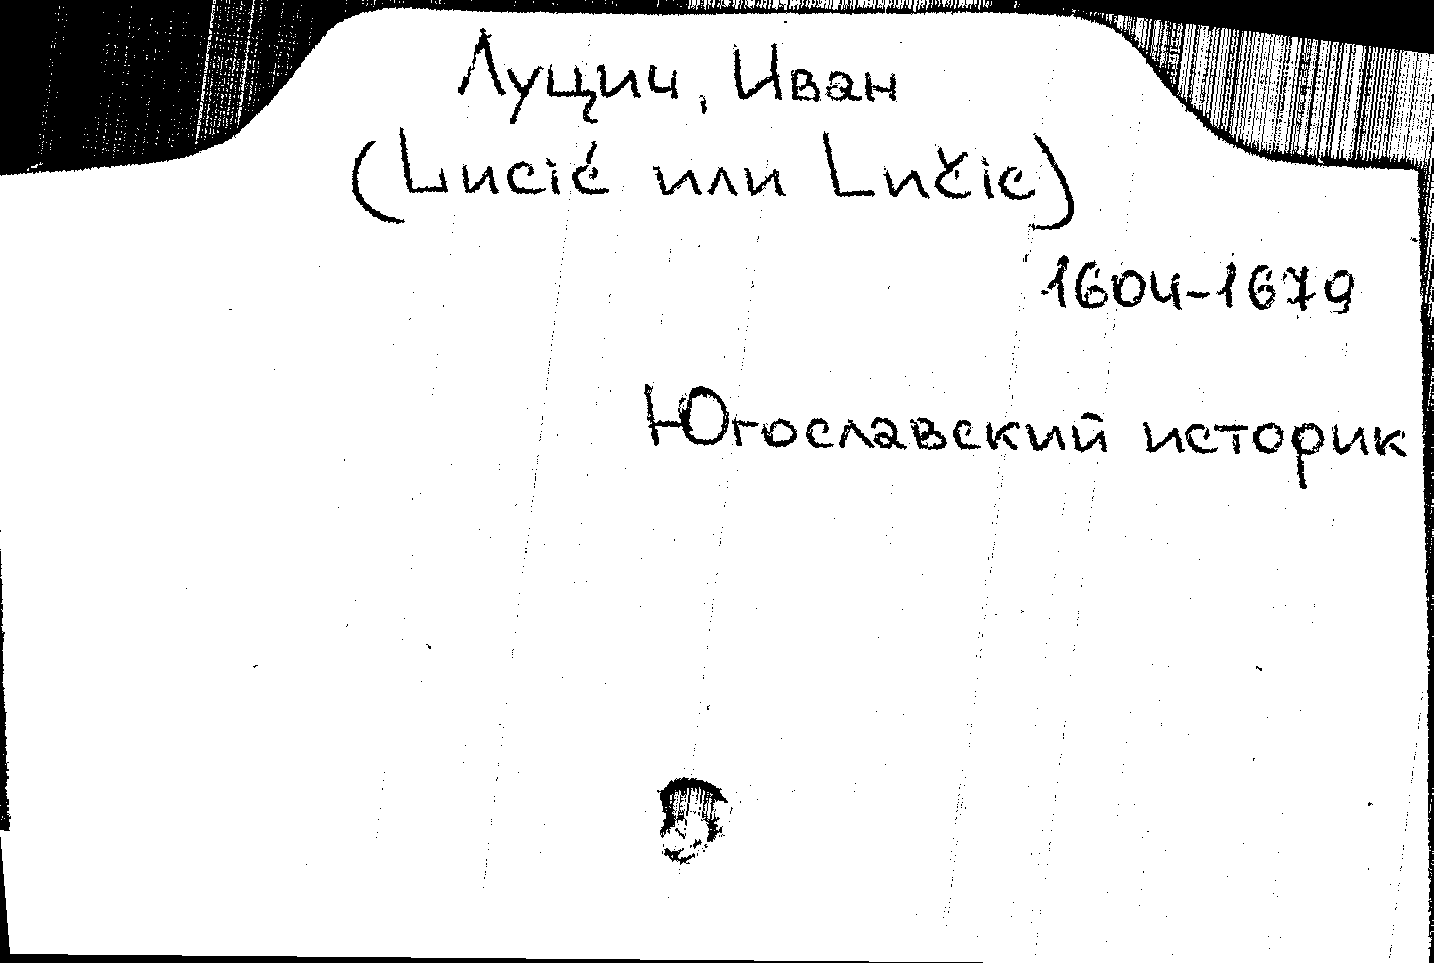 Луцич, Иван
(Lucić или Lučic)
1604-1679
Югославский историк